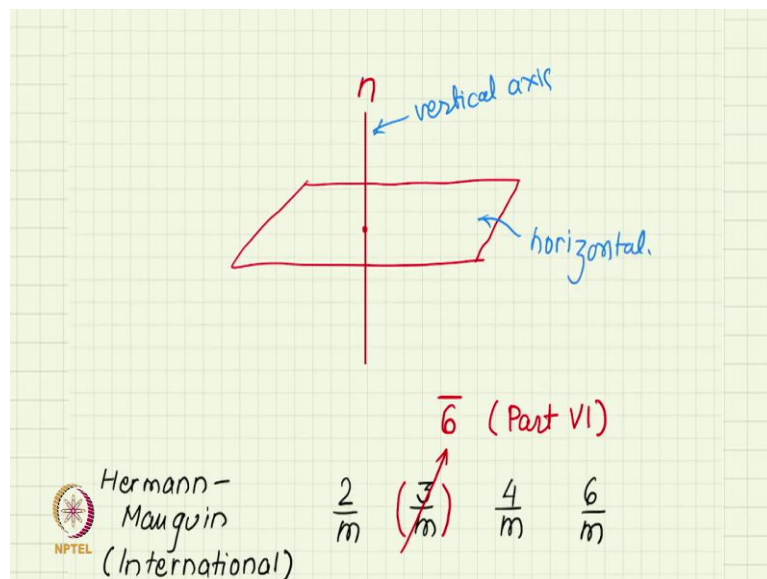 n
vertical axis
horizontal.
6̅ (Part VI)
Hermann-
Mauguin
(International)
2/m (3/m) 4/m 6/m
NPTEL